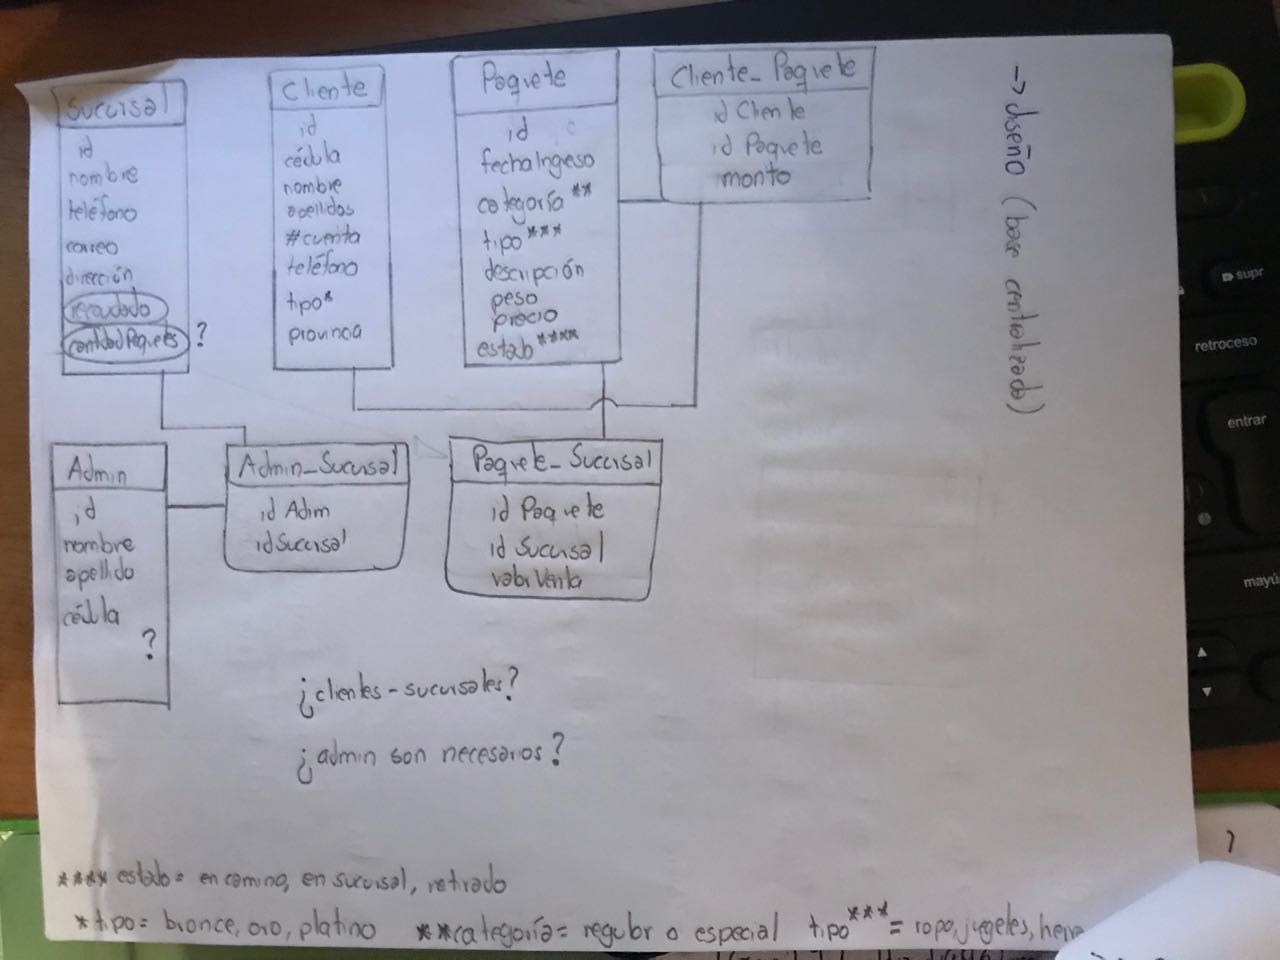 Sucursal
id
nombre
teléfono
correo
dirección
recaudado
cantidadPaquetes ?
Cliente
id
cédula
nombre
apellidos
#cuenta
teléfono
tipo*
provincia
Paquete
id
fechaIngeso
categoría**
tipo***
descripción
peso
precio
estado****
Cliente_Paquete
id Cliente
id Paquete
monto
-> diseño (base centralizada)
Admin
id
nombre
apellido
cédula
?
Admin_Sucursal
id Adim
idSucursal
Paquete_Sucursal
id Paquete
id Sucursal
valorVenta
¿clientes-sucursales?
¿admin son necesarios?
**** estado= en camino, en sucursal, retirado
*tipo= bronce, oro, platino **categoría= regular o especial tipo***= ropa, jugetes, herra
supr
retroceso
entrar
mayú